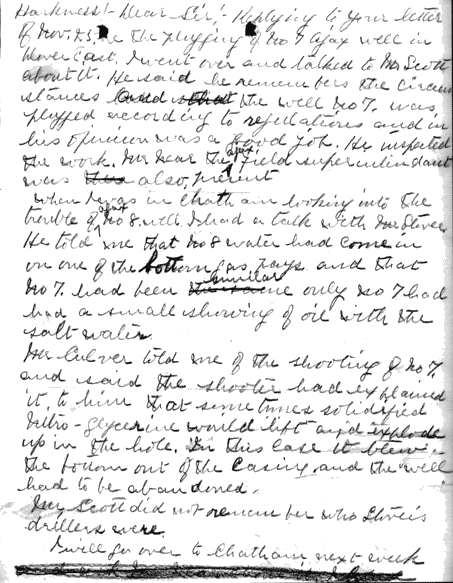 Harkness! - Dear Sir! - Replying to your letter
of Nov. 25, re the plugging of No 7 Ajax well in
Dover East. I went over and talked to Mr Scott
about it. He said he remembers the circum
stances and that the well No 7. was
plugged according to regulations and in
his opinion was a good job. He inspected
the work. Mr Dear the Ajax Field superintendant
was this also, present
When I was in Chatham looking into the
trouble of Ajax No 8. well I had a talk with Mr
He told me that No 8 water had come in
on one of the bottom gas pays and that
No 7. had been similar only No 7 had
had a small showing of oil with the
salt water.
Mr Culver told me of the shooting of No 7,
and said the shooter had explained
it, to him that sometimes solidified
Nitro-glycerine would lift and explode
up in the hole. In this case it blew
the bottom out of the casing and the well
had to be abandoned.
Mr Scott did not remember who
drillers were.
I will go over to Chatham next week